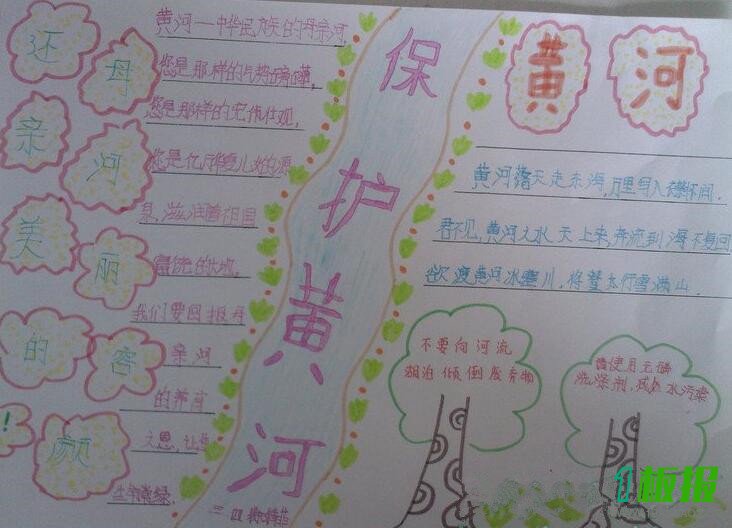 还母亲河美丽的容颜!
黄河—中华民族的母亲河
您是那样的气势磅礴,
您是那样的宏伟壮观,
您是亿万华夏儿女的源
泉,滋润着祖国
富饶的大地,
我们要回报母
亲河
的养育
之恩,让您
生命常绿
保护黄河
二 四
黄河
黄河落天走东海,万里写入襟怀间.
君不见,黄河之水天上来,奔流到海不复回
欲渡黄河冰塞川,将登太行雪满山.
不要向河流
湖泊倾倒废弃物
请使用无磷
洗涤剂,减少水污染
板报